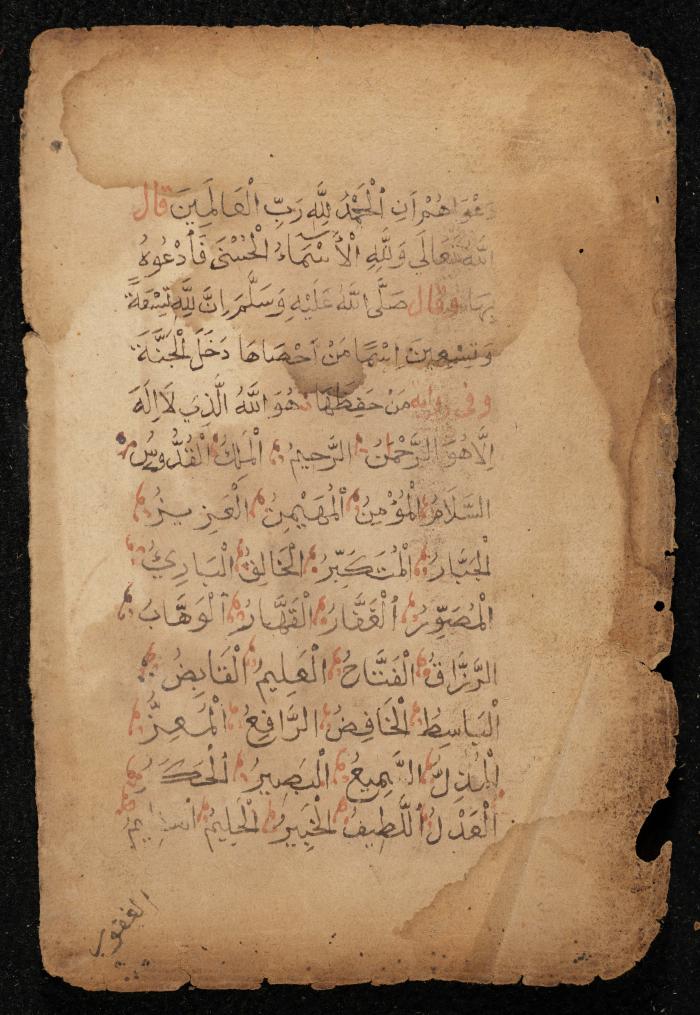 دَعْوَاهُمْ اَنِ الْحَمْدُ لِلّٰهِ رَبِّ الْعَالَمِينَ قال
اللّٰهُ تَعَالَى وَلِلّٰهِ الْاَسْمَاءُ الْحُسْنَى فَادْعُوهُ
بِهَا وقال صَلَّى اللّٰهُ عَلَيْهِ وَسَلَّمَ اِنَّ لِلّٰهِ تِسْعَةً
وَتِسْعِينَ اِسْمًا مَنْ اَحْصَاهَا دَخَلَ الْجَنَّةَ
وفى رواية مَنْ حَفِظَهَا هُوَ اللّٰهُ الَّذِي لَا اِلَهَ
اِلَّا هُوَ الرَّحْمٰنُ الرَّحِيمُ الْمَلِكُ الْقُدُّوسُ
السَّلَامُ الْمُؤْمِنُ الْمُهَيْمِنُ الْعَزِيزُ
الْجَبَّارُ الْمُتَكَبِّرُ الْخَالِقُ الْبَارِئُ
الْمُصَوِّرُ الْغَفَّارُ الْقَهَّارُ الْوَهَّابُ
الرَّزَّاقُ الْفَتَّاحُ الْعَلِيمُ الْقَابِضُ
الْبَاسِطُ الْخَافِضُ الرَّافِعُ الْمُعِزُّ
الْمُذِلُّ السَّمِيعُ الْبَصِيرُ الْحَكَمُ
الْعَدْلُ اللَّطِيفُ الْخَبِيرُ الْحَلِيمُ الْعَظِيمُ
الغفور